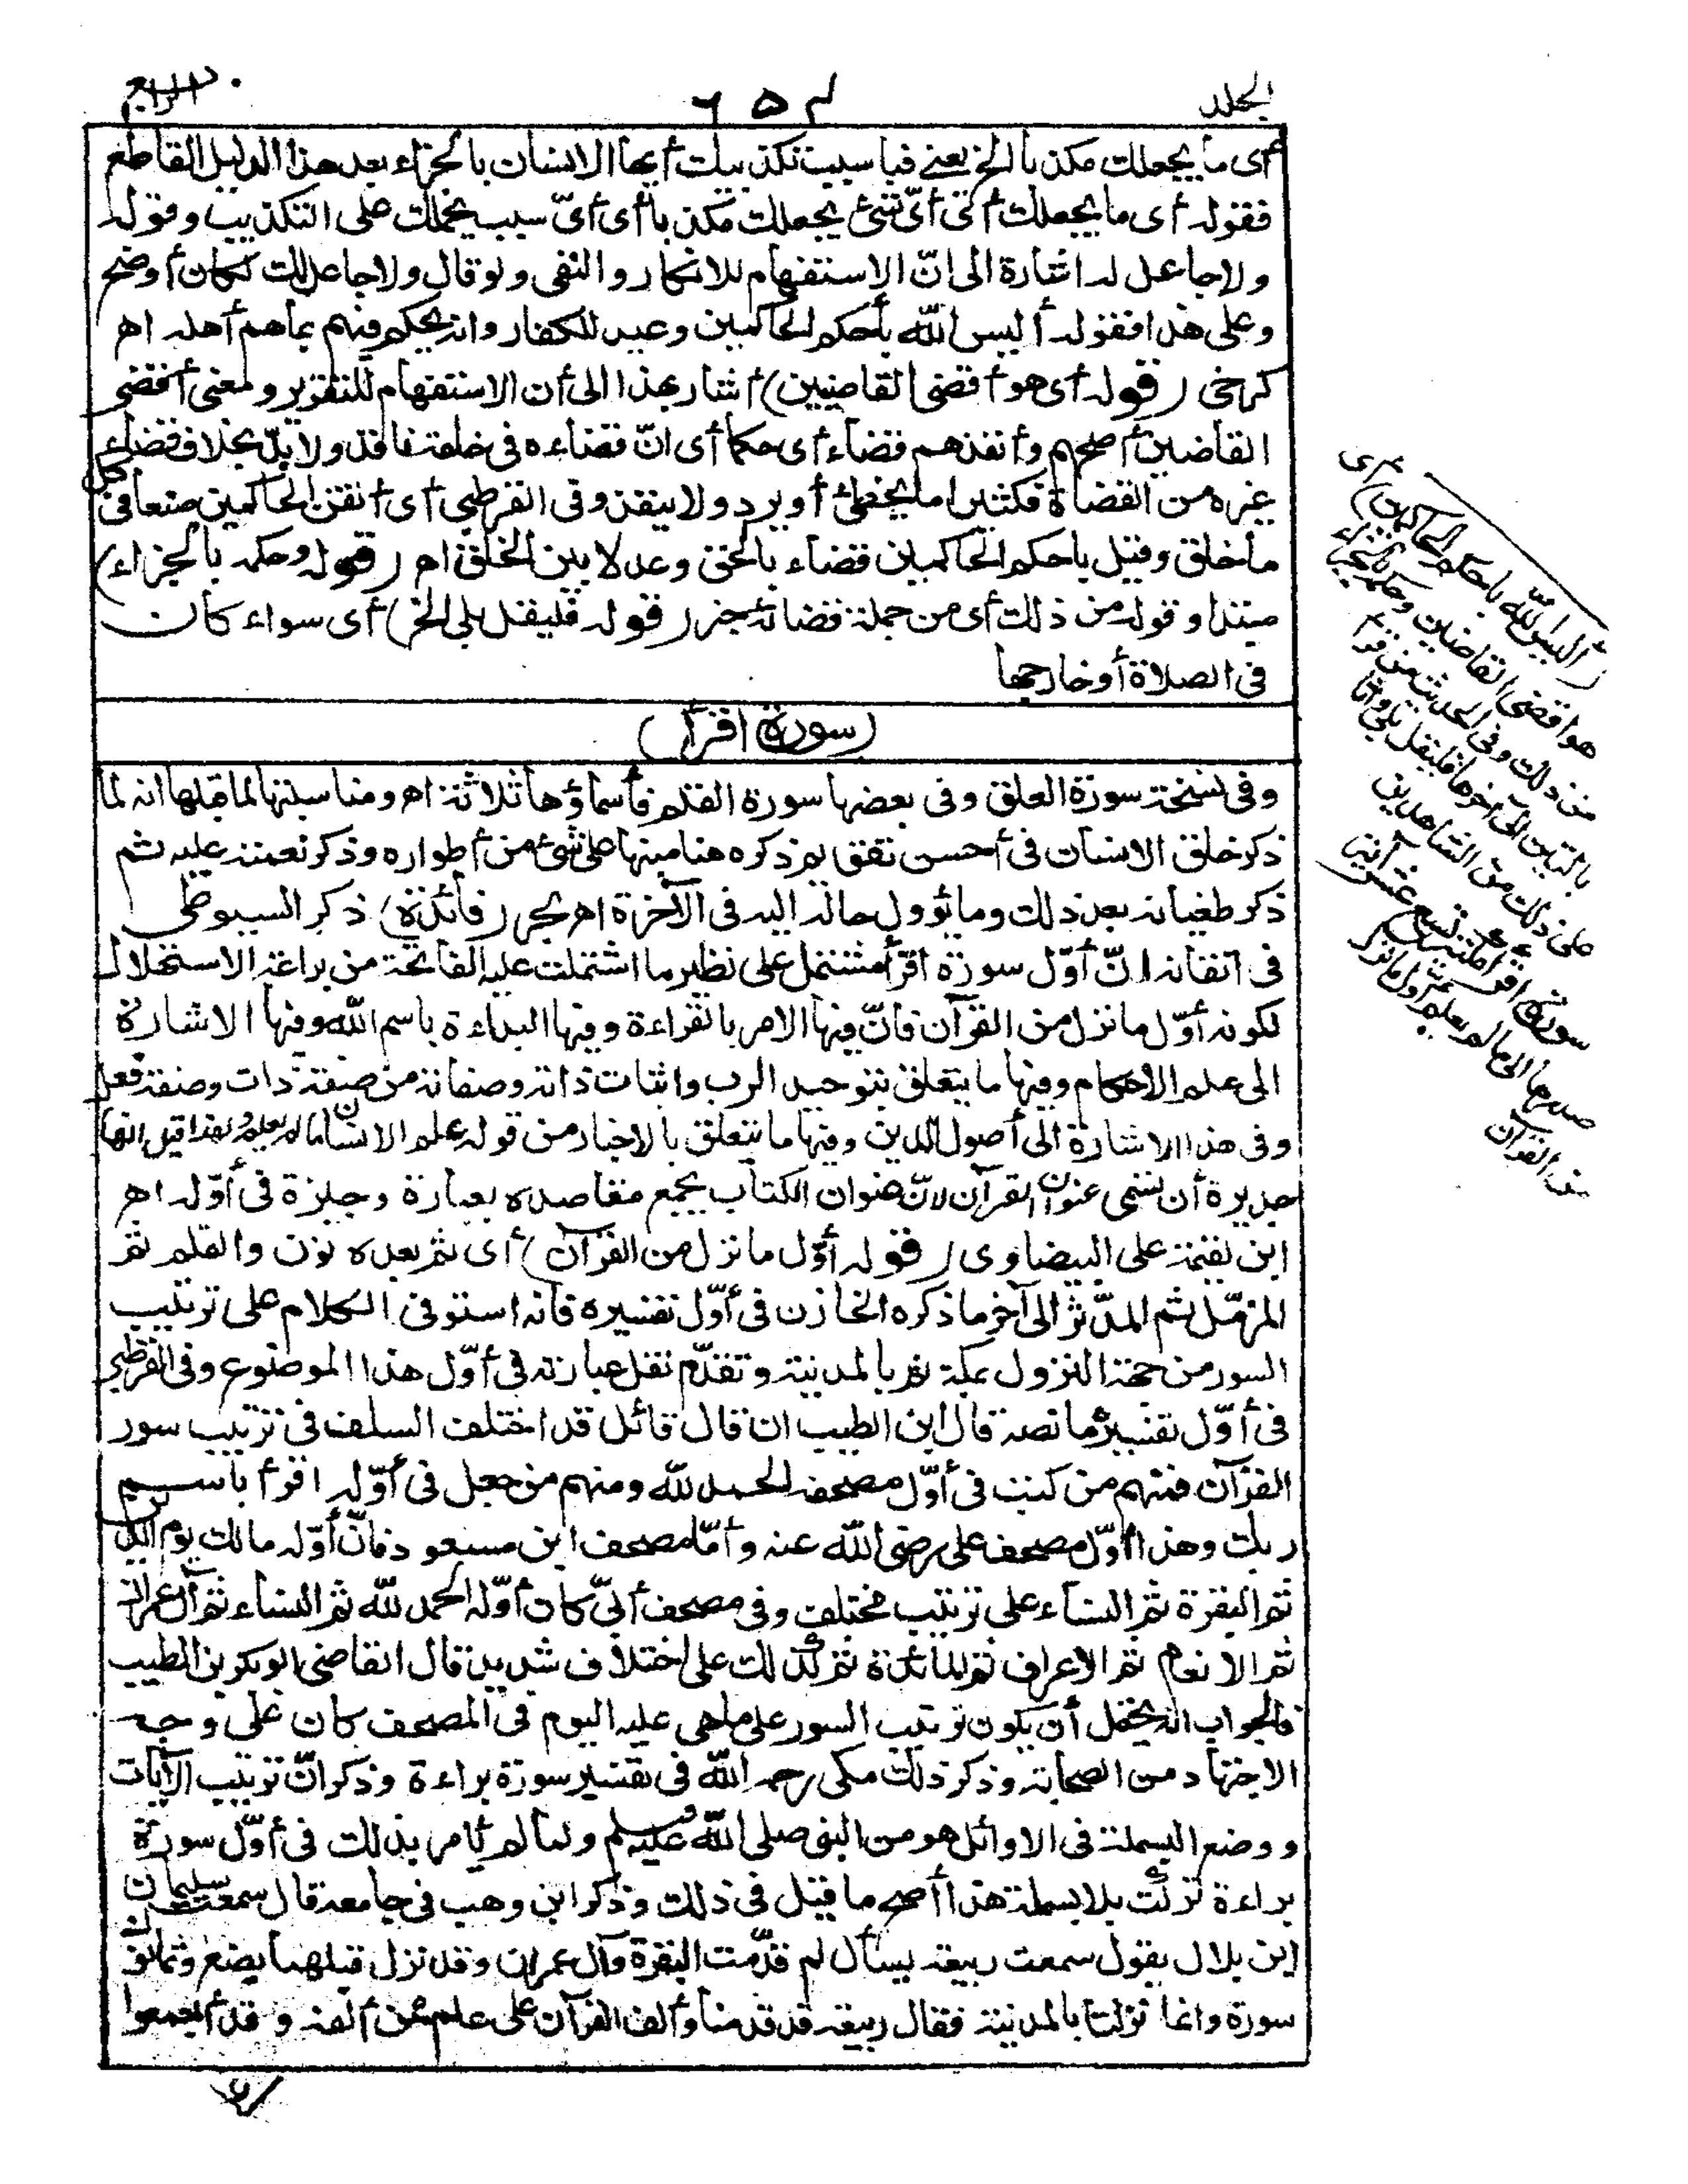 الجلد
٦٥٣
الرابع
أى ما يجعلك مكذبا الخ يعنى فبأى سبب تكذيبك أيها الانسان بالجزاء بعد هذا الدليل القاطع
فقوله أى ما يجعلك أى أىّ شئ يجعلك مكذبا أى أىّ سبب يحملك على التكذيب وقوله
ولا جاعل له اشارة الى انّ الاستفهام للانكار والنفى ولو قال ولا جاعل لك لكان أوضح
وعلى هذا فقوله أليس الله بأحكم الحاكمين وعيد للكفار وانه يحكم فيهم بما هم أهله اھ
كرخى (قوله أى هو أقضى القاضين) أشار بهذا الى أن الاستفهام للتقرير ومعنى أقضى
القاضين أصلحهم وأنفذهم قضاء أى حكما أى انّ قضاءه فى خلقه نافذ ولا بدّ بخلاف قضاء
غيره من القضاة فكثيرا ما يخطئ أو يرد ولا ينفذ وفى القرطبى أى أتقن الحاكمين صنعا فى كل
ما خلق وقيل بأحكم الحاكمين قضاء بالحق وعدلا بين الخلق اھ (قوله وحكمه بالجزاء)
مبتدا وقوله من ذلك أى من جملة قضائه خبر (قوله فليقل بلى الخ) أى سواء كان
فى الصلاة أو خارجها
(سورة اقرأ)
وفى نسخة سورة العلق وفى بعضها سورة القلم فأسماؤها ثلاثة اھ ومناسبتها لما قبلها انه لما
ذكر خلق الانسان فى أحسن تقويم ذكره هنا منبها على شئ من أطواره وذكر نعمته عليه ثم
ذكر طغيانه بعد ذلك وما يؤول حاله اليه فى الآخرة اھ بحر (فائدة) ذكر السيوطى
فى اتقانه انّ أوّل سورة اقرأ مشتمل على نظير ما اشتملت عليه الفاتحة من براعة الاستهلال
لكونه أوّل ما نزل من القرآن فانّ فيها الامر بالقراءة وفيها البداءة باسم الله وفيها الاشارة
الى علم الاحكام وفيها ما يتعلق بتوحيد الرب واثبات ذاته وصفاته من صفة ذات وصفة فعل
وفى هذا الاشارة الى أصول الدين وفيها ما يتعلق بالاخبار من قوله علم الانسان ما لم يعلم ولهذا قيل انها
جديرة أن تسمى عنوان القرآن لانّ عنوان الكتاب يجمع مقاصده بعبارة وجيزة فى أوّله اھ
ابن لقيمة على البيضاوى (قوله أوّل ما نزل من القرآن) أى ثم بعده نون والقلم ثم
المزمّل ثم المدّثر الى آخر ما ذكره الخازن فى أوّل تفسيره فانه استوفى الكلام على ترتيب
السور من جهة النزول بمكة ثم بالمدينة وتقدّم نقل عبارته فى أوّل هذا الموضوع وفى القرطبى
فى أوّل تفسيره ما نصه قال ابن الطيب ان قال قائل قد اختلف السلف فى ترتيب سور
القرآن فمنهم من كتب فى أوّل مصحفه الحمد لله ومنهم من جعل فى أوّله اقرأ باسم
ربك وهذا أوّل مصحف على رضى الله عنه وأمّا مصحف ابن مسعود فانّ أوّله مالك يوم الدين
ثم البقرة ثم النساء على ترتيب مختلف وفى مصحف أبىّ كان أوّله الحمد لله ثم النساء ثم آل عمران
ثم الانعام ثم الاعراف ثم المائدة ثم كذلك على اختلاف شديد قال القاضى أبو بكر بن الطيب
فالجواب انه يحتمل أن يكون ترتيب السور على ما هى عليه اليوم فى المصحف كان على وجه
الاجتهاد من الصحابة وذكر ذلك مكى رحمه الله فى تفسير سورة براءة وذكر انّ ترتيب الآيات
ووضع البسملة فى الاوائل هو من النبى صلى الله عليه وسلم ولما لم يأمر بذلك فى أوّل سورة
براءة تركت بلا بسملة هذا أصح ما قيل فى ذلك وذكر ابن وهب فى جامعه قال سمعت سليمان
ابن بلال يقول سمعت ربيعة يسأل لم قدّمت البقرة وآل عمران وقد نزل قبلهما بضع وثمانون
سورة وانما نزلتا بالمدينة فقال ربيعة قد قدمتا وألف القرآن على علم ممن ألفه وقد أجمعوا
(أليس الله بأحكم الحاكمين) أى
هو اقضى القاضين وحكمه بالجزاء
من ذلك وفى الحديث من قرأ
بالتين الى آخرها فليقل بلى وانا
على ذلك من الشاهدين
سورة اقرأ مكية تسع عشرة آية
صدرها الى ما لم يعلم أول ما نزل
من القرآن